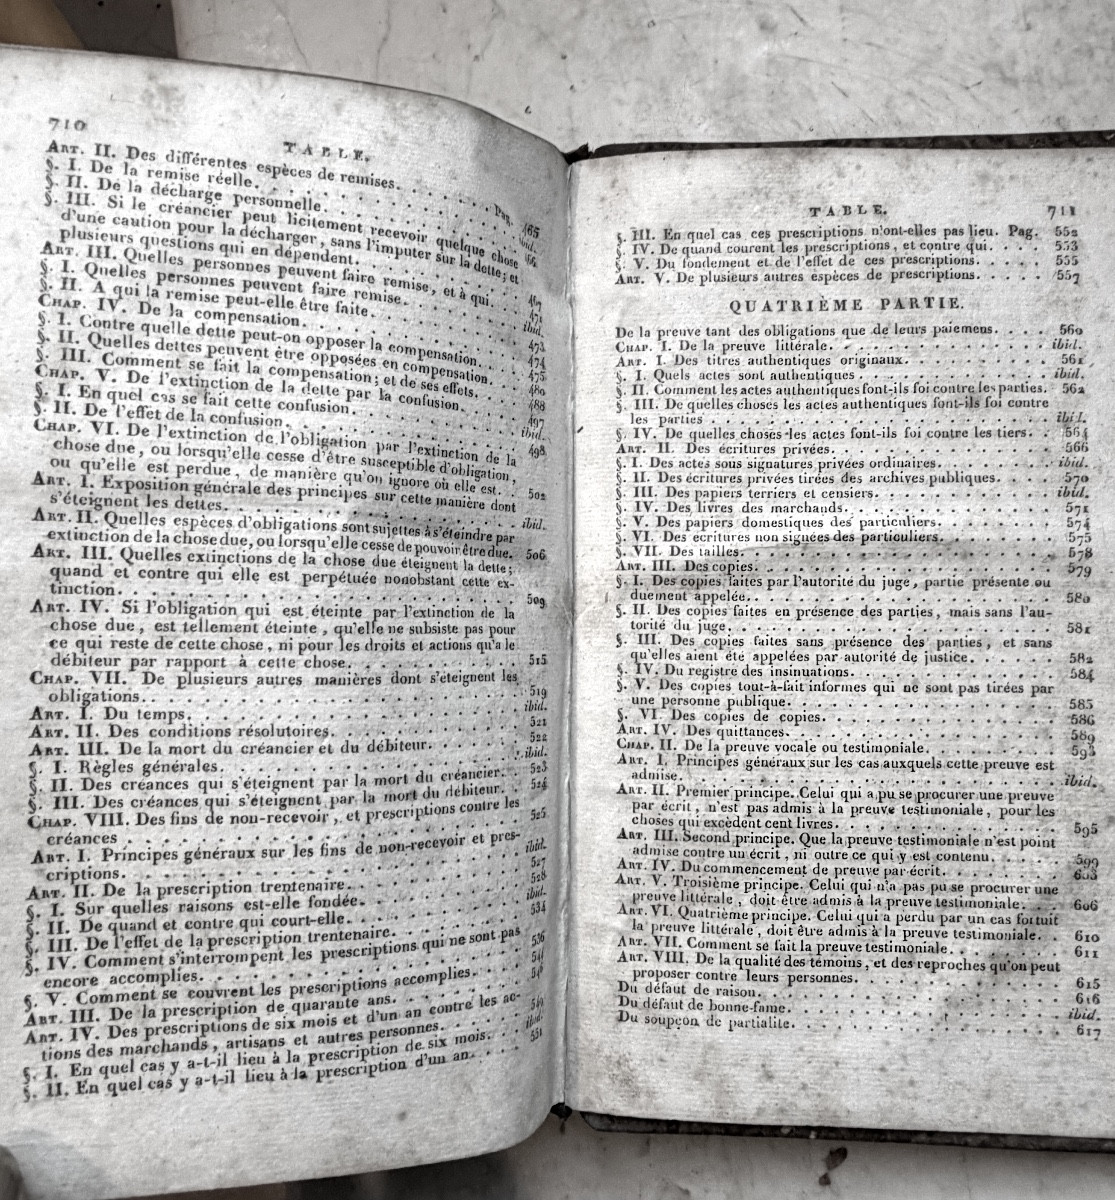 710
TABLE.
ART. II. Des différentes espèces de remises. Pag. 465
§. I. De la remise réelle. ibid.
§. II. De la décharge personnelle. 466
§. III. Si le créancier peut licitement recevoir quelque chose
d'une caution pour la décharger, sans l'imputer sur la dette; et
plusieurs questions qui en dépendent. 467
ART. III. Quelles personnes peuvent faire remise, et à qui. 471
§. I. Quelles personnes peuvent faire remise. ibid.
§. II. A qui la remise peut-elle être faite. 473
CHAP. IV. De la compensation. 474
§. I. Contre quelle dette peut-on opposer la compensation. 475
§. II. Quelles dettes peuvent être opposées en compensation. 480
§. III. Comment se fait la compensation; et de ses effets. 488
CHAP. V. De l'extinction de la dette par la confusion. 497
§. I. En quel cas se fait cette confusion. ibid.
§. II. De l'effet de la confusion. 498
CHAP. VI. De l'extinction de l'obligation par l'extinction de la
chose due, ou lorsqu'elle cesse d'être susceptible d'obligation,
ou qu'elle est perdue, de manière qu'on ignore où elle est. 502
ART. I. Exposition générale des principes sur cette manière dont
s'éteignent les dettes. ibid.
ART. II. Quelles espèces d'obligations sont sujettes à s'éteindre par
extinction de la chose due, ou lorsqu'elle cesse de pouvoir être due. 506
ART. III. Quelles extinctions de la chose due éteignent la dette;
quand et contre qui elle est perpétuée nonobstant cette ex-
tinction. 509
ART. IV. Si l'obligation qui est éteinte par l'extinction de la
chose due, est tellement éteinte, qu'elle ne subsiste pas pour
ce qui reste de cette chose, ni pour les droits et actions qu'a le
débiteur par rapport à cette chose. 515
CHAP. VII. De plusieurs autres manières dont s'éteignent les
obligations. 519
ART. I. Du temps. ibid.
ART. II. Des conditions résolutoires. 521
ART. III. De la mort du créancier et du débiteur. 522
§. I. Règles générales. ibid.
§. II. Des créances qui s'éteignent par la mort du créancier. 523
§. III. Des créances qui s'éteignent par la mort du débiteur. 524
CHAP. VIII. Des fins de non-recevoir, et prescriptions contre les
créances 525
ART. I. Principes généraux sur les fins de non-recevoir et pres-
criptions. ibid.
ART. II. De la prescription trentenaire. 527
§. I. Sur quelles raisons est-elle fondée. 528
§. II. De quand et contre qui court-elle. ibid.
§. III. De l'effet de la prescription trentenaire. 534
§. IV. Comment s'interrompent les prescriptions qui ne sont pas
encore accomplies. 536
§. V. Comment se couvrent les prescriptions accomplies.
ART. III. De la prescription de quarante ans.
ART. IV. Des prescriptions de six mois et d'un an contre les ac-
tions des marchands, artisans et autres personnes. 549
§. I. En quel cas y a-t-il lieu à la prescription de six mois. ibid.
§. II. En quel cas y a-t-il lieu à la prescription d'un an. 551
TABLE. 711
§. III. En quel cas ces prescriptions n'ont-elles pas lieu. Pag. 552
§. IV. De quand courent les prescriptions, et contre qui. 553
§. V. Du fondement et de l'effet de ces prescriptions. 555
ART. V. De plusieurs autres espèces de prescriptions. 557
QUATRIÈME PARTIE.
De la preuve tant des obligations que de leurs paiemens. 560
CHAP. I. De la preuve littérale. ibid.
ART. I. Des titres authentiques originaux. 561
§. I. Quels actes sont authentiques ibid.
§. II. Comment les actes authentiques font-ils foi contre les parties. 562
§. III. De quelles choses les actes authentiques font-ils foi contre
les parties ibid.
§. IV. De quelles choses les actes font-ils foi contre les tiers. 564
ART. II. Des écritures privées. 566
§. I. Des actes sous signatures privées ordinaires. ibid.
§. II. Des écritures privées tirées des archives publiques. 570
§. III. Des papiers terriers et censiers. ibid.
§. IV. Des livres des marchands. 571
§. V. Des papiers domestiques des particuliers. 574
§. VI. Des écritures non signées des particuliers. 575
§. VII. Des tailles. 578
ART. III. Des copies. 579
§. I. Des copies faites par l'autorité du juge, partie présente ou
duement appelée. 580
§. II. Des copies faites en présence des parties, mais sans l'au-
torité du juge. 581
§. III. Des copies faites sans présence des parties, et sans
qu'elles aient été appelées par autorité de justice. 582
§. IV. Du registre des insinuations. 584
§. V. Des copies tout-à-fait informes qui ne sont pas tirées par
une personne publique. 585
§. VI. Des copies de copies. 586
ART. IV. Des quittances. 589
CHAP. II. De la preuve vocale ou testimoniale. 593
ART. I. Principes généraux sur les cas auxquels cette preuve est
admise. ibid.
ART. II. Premier principe. Celui qui a pu se procurer une preuve
par écrit, n'est pas admis à la preuve testimoniale, pour les
choses qui excèdent cent livres. 595
ART. III. Second principe. Que la preuve testimoniale n'est point
admise contre un écrit, ni outre ce qui y est contenu. 599
ART. IV. Du commencement de preuve par écrit. 603
ART. V. Troisième principe. Celui qui n'a pas pu se procurer une
preuve littérale, doit être admis à la preuve testimoniale. 606
ART. VI. Quatrième principe. Celui qui a perdu par un cas fortuit
la preuve littérale, doit être admis à la preuve testimoniale. 610
ART. VII. Comment se fait la preuve testimoniale. 611
ART. VIII. De la qualité des témoins, et des reproches qu'on peut
proposer contre leurs personnes. 615
Du défaut de raison. 616
Du défaut de bonne-fame. ibid.
Du soupçon de partialité. 617